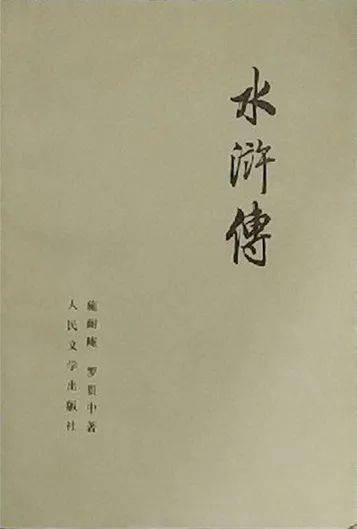 水滸傳
施耐庵 罗贯中著
人民文学出版社